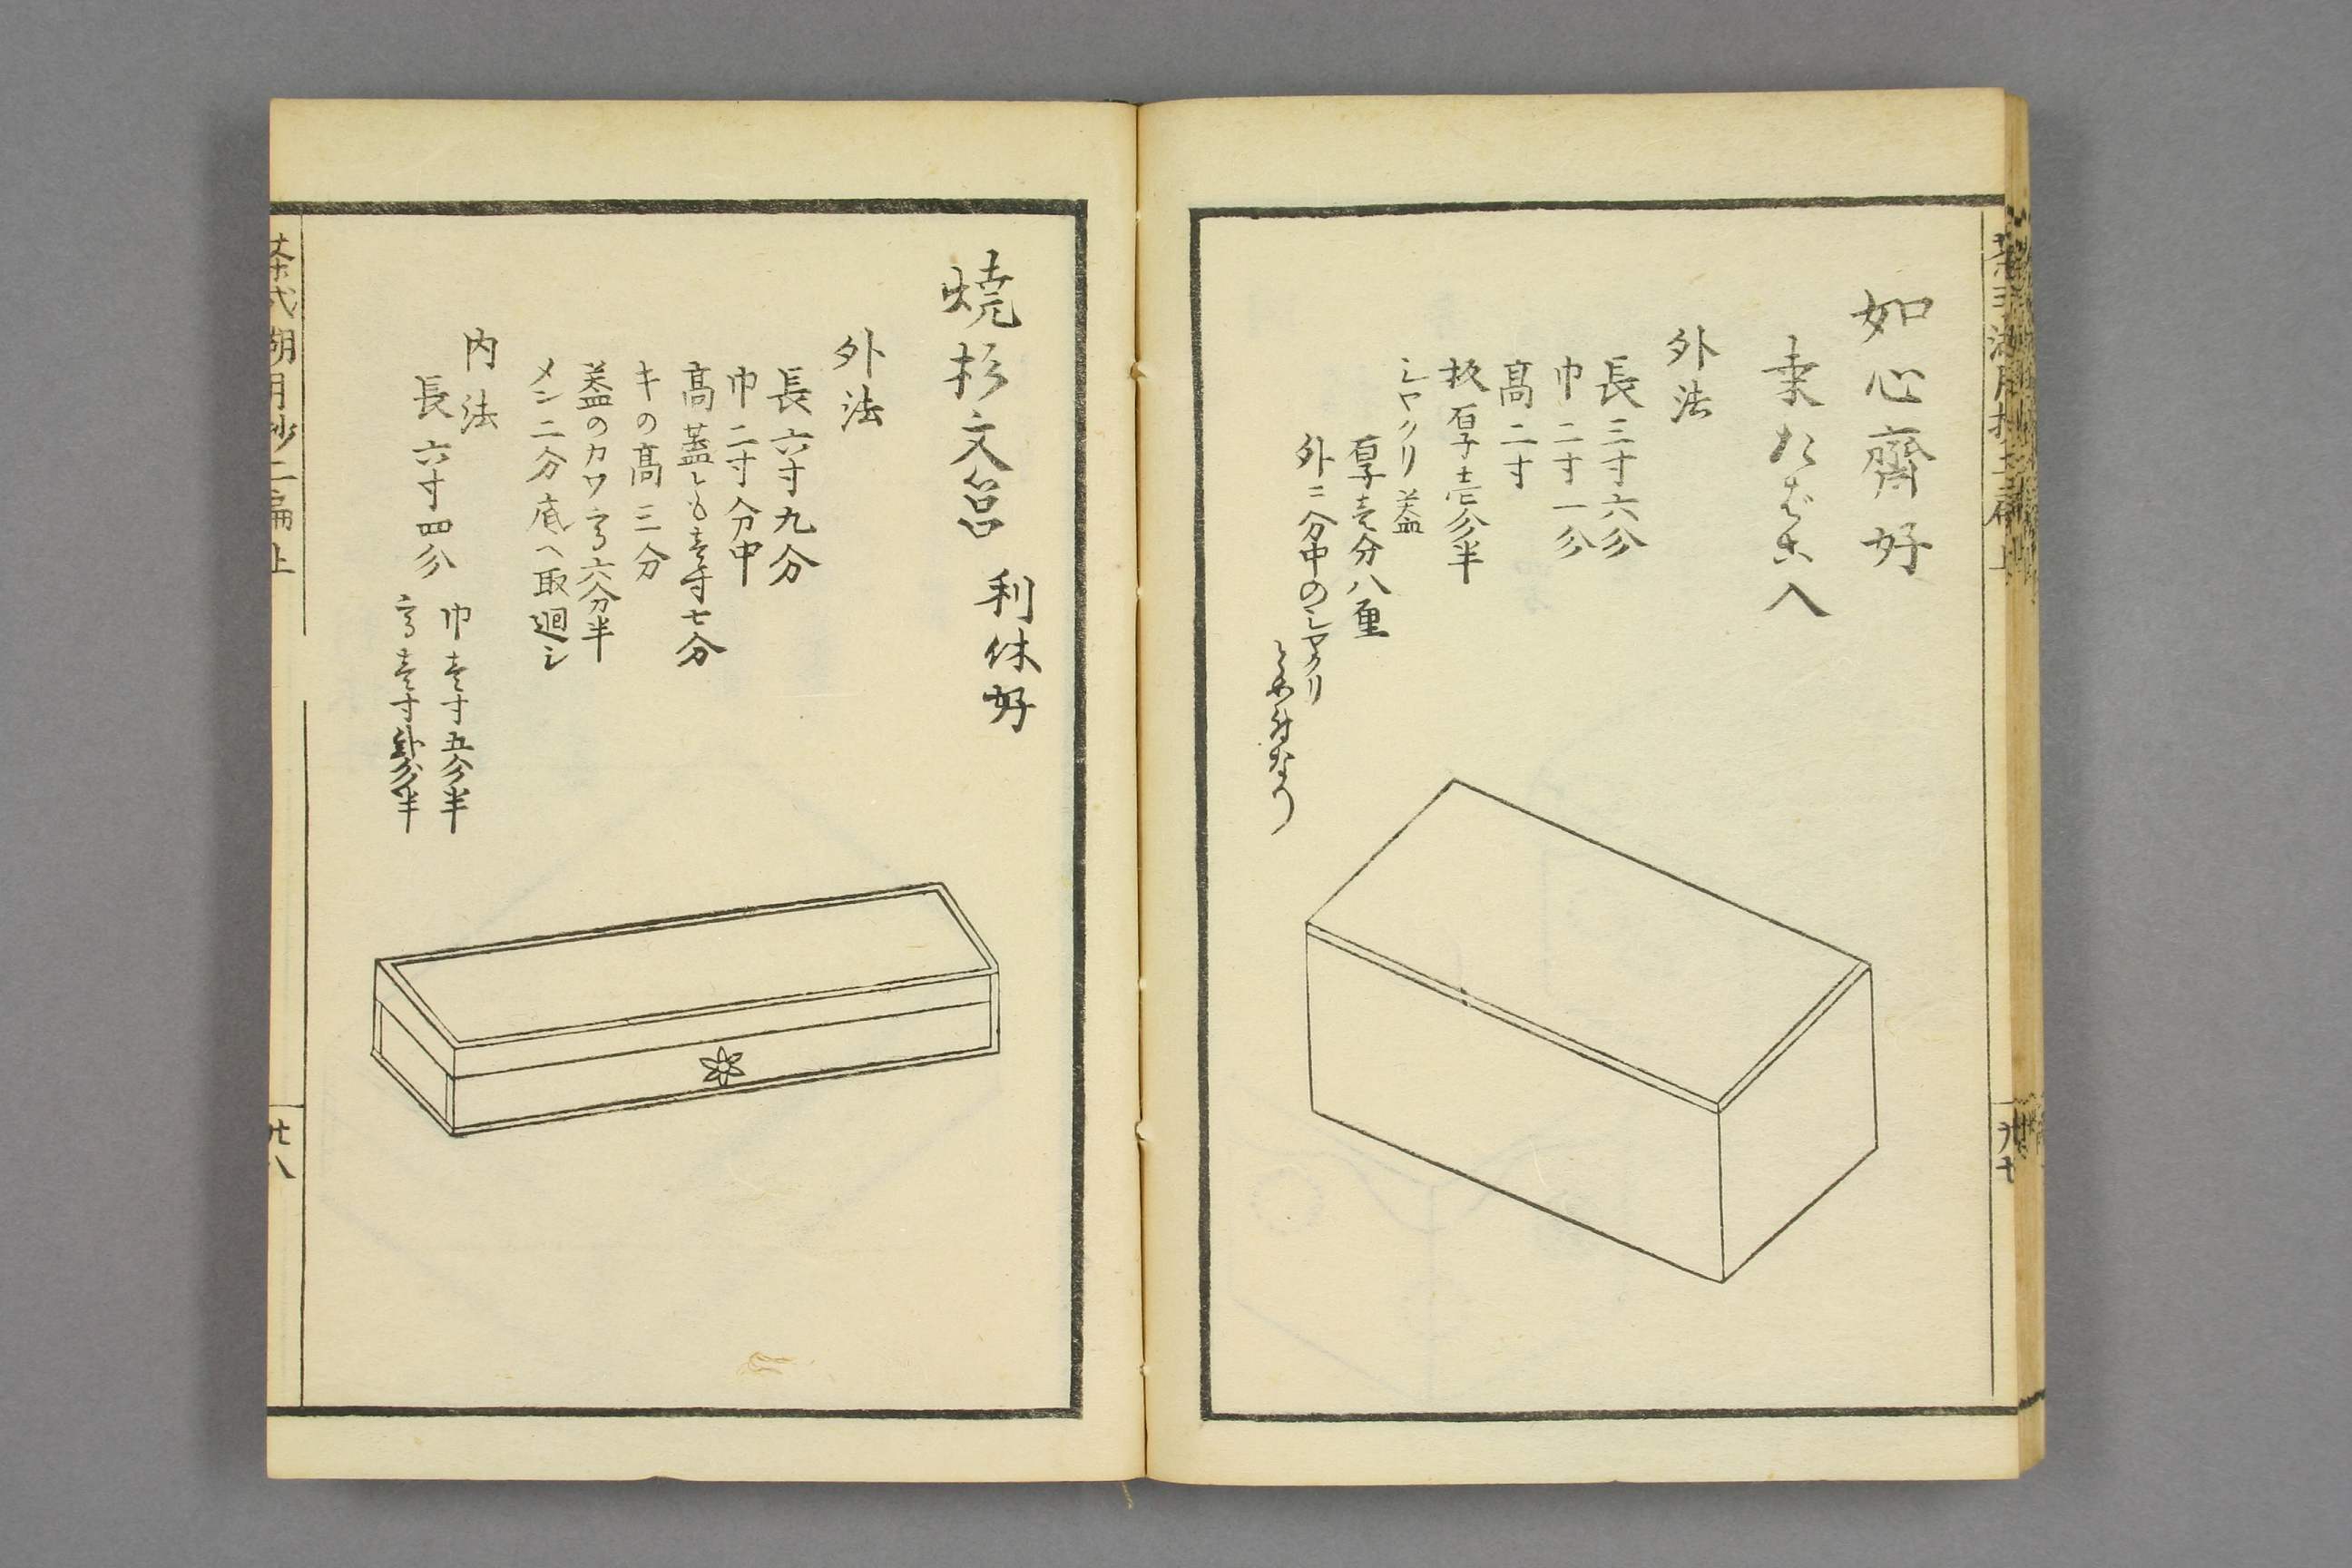 如心齋好
桑たばこ入
外法
長三寸六分
巾二寸一分
高二寸
板厚壱分半
シヤクリ蓋
厚壱分八厘
外ニ分中のシヤクリ
とめ付なり
焼杉文筥 利休好
外法
長六寸九分
巾二寸分中
高蓋とも壱寸七分
キの高三分
蓋のカワ高六分半
メン二分底へ取廻シ
内法
長六寸四分
巾壱寸五分半
高壱寸 分半
茶式湖月抄二編上
廿八